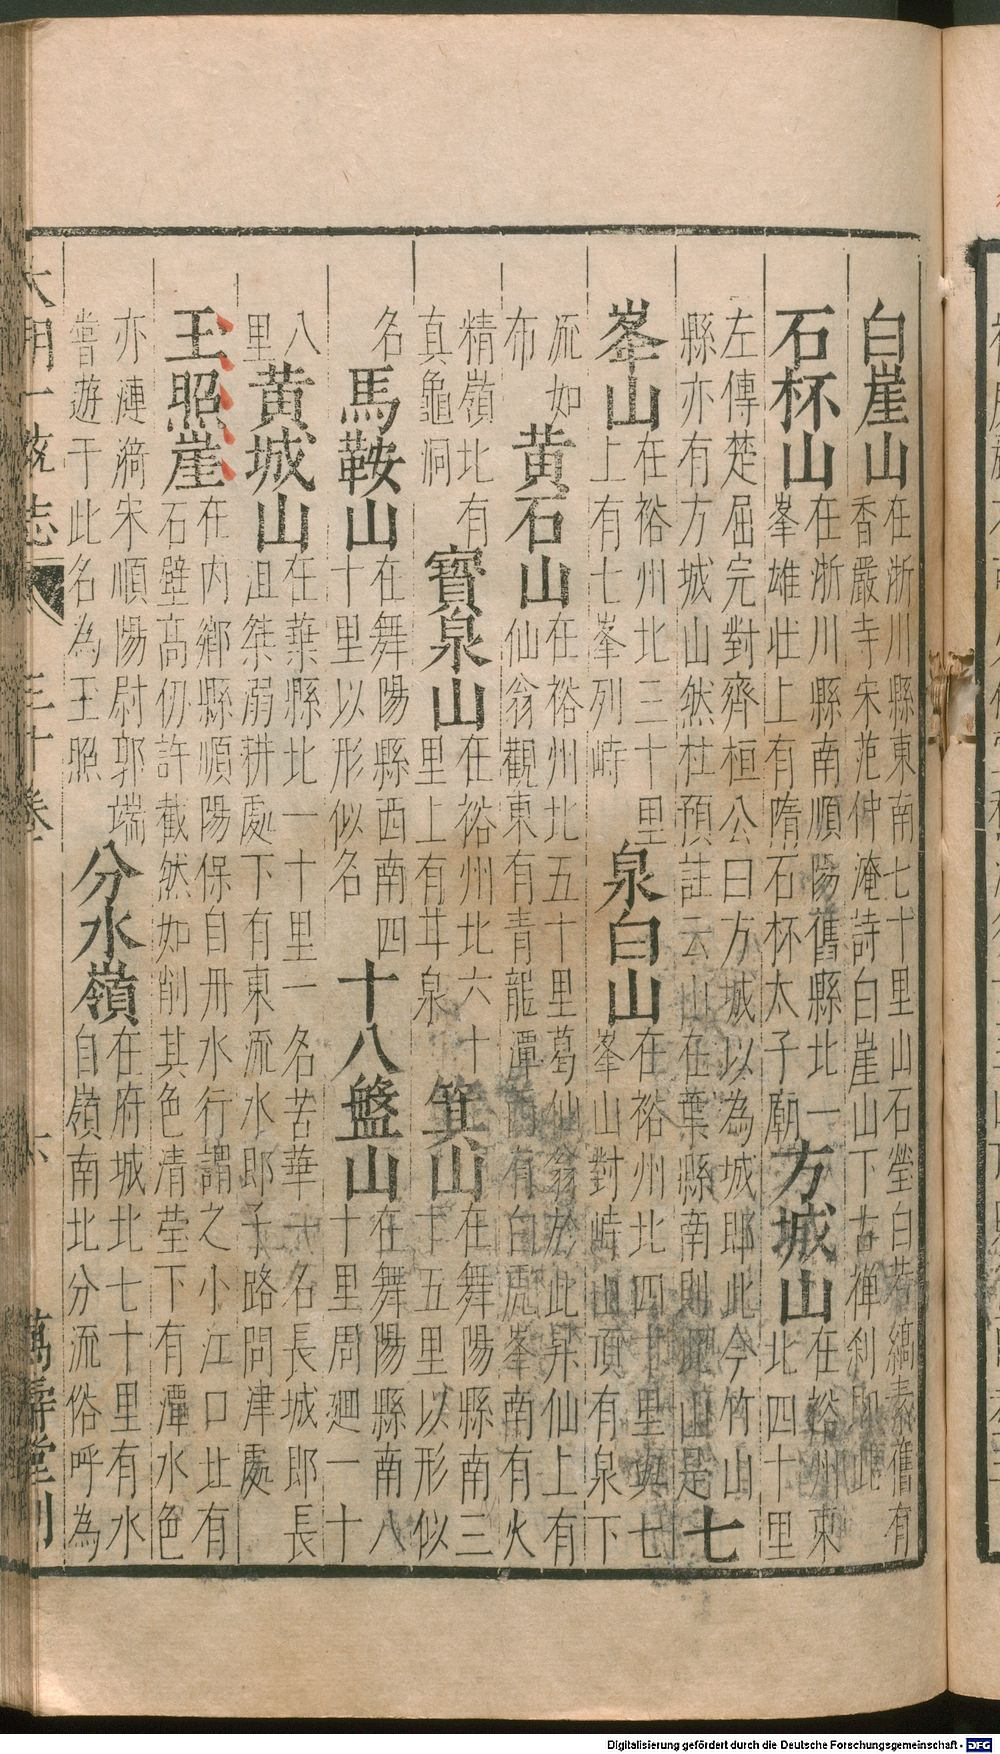 白崖山在浙川縣東南七十里山石瑩白若縞素舊有
香嚴寺宋范仲淹詩白崖山下古禪刹即此
石杯山在浙川縣南順陽舊縣北一
峯雄壯上有隋石杯太子廟
方城山在裕州東
北四十里
左傳楚屈完對齊桓公曰方城以為城即此今竹山
縣亦有方城山然杜預註云山在葉縣南則此山是
七
峯山在裕州北三十里
上有七峯列峙
泉白山在裕州北四十里與七
峯山對峙山頂有泉下
流如
布
黄石山在裕州北五十里葛仙翁於此昇仙上有
仙翁觀東有青龍潭西有白虎峯南有火
精嶺北有
真龜洞
寶泉山在裕州北六十
里上有井泉
箕山在舞陽縣南三
十五里以形似
名
馬鞍山在舞陽縣西南四
十里以形似名
十八盤山在舞陽縣南八
十里周廻一十
八
里
黄城山在葉縣北一十里一名苦華一名長城即長
沮桀溺耕處下有東流水即子路問津處
王照崖在内鄉縣順陽保自冊水行謂之小江口北有
石壁高仞許截然如削其色清瑩下有潭水色
亦漣漪宋順陽尉郭端
嘗遊于此名為王照
分水嶺在府城北七十里有水
自嶺南北分流俗呼為
大明一統志 三十卷 六 萬壽堂刊
Digitalisierung gefördert durch die Deutsche Forschungsgemeinschaft - DFG